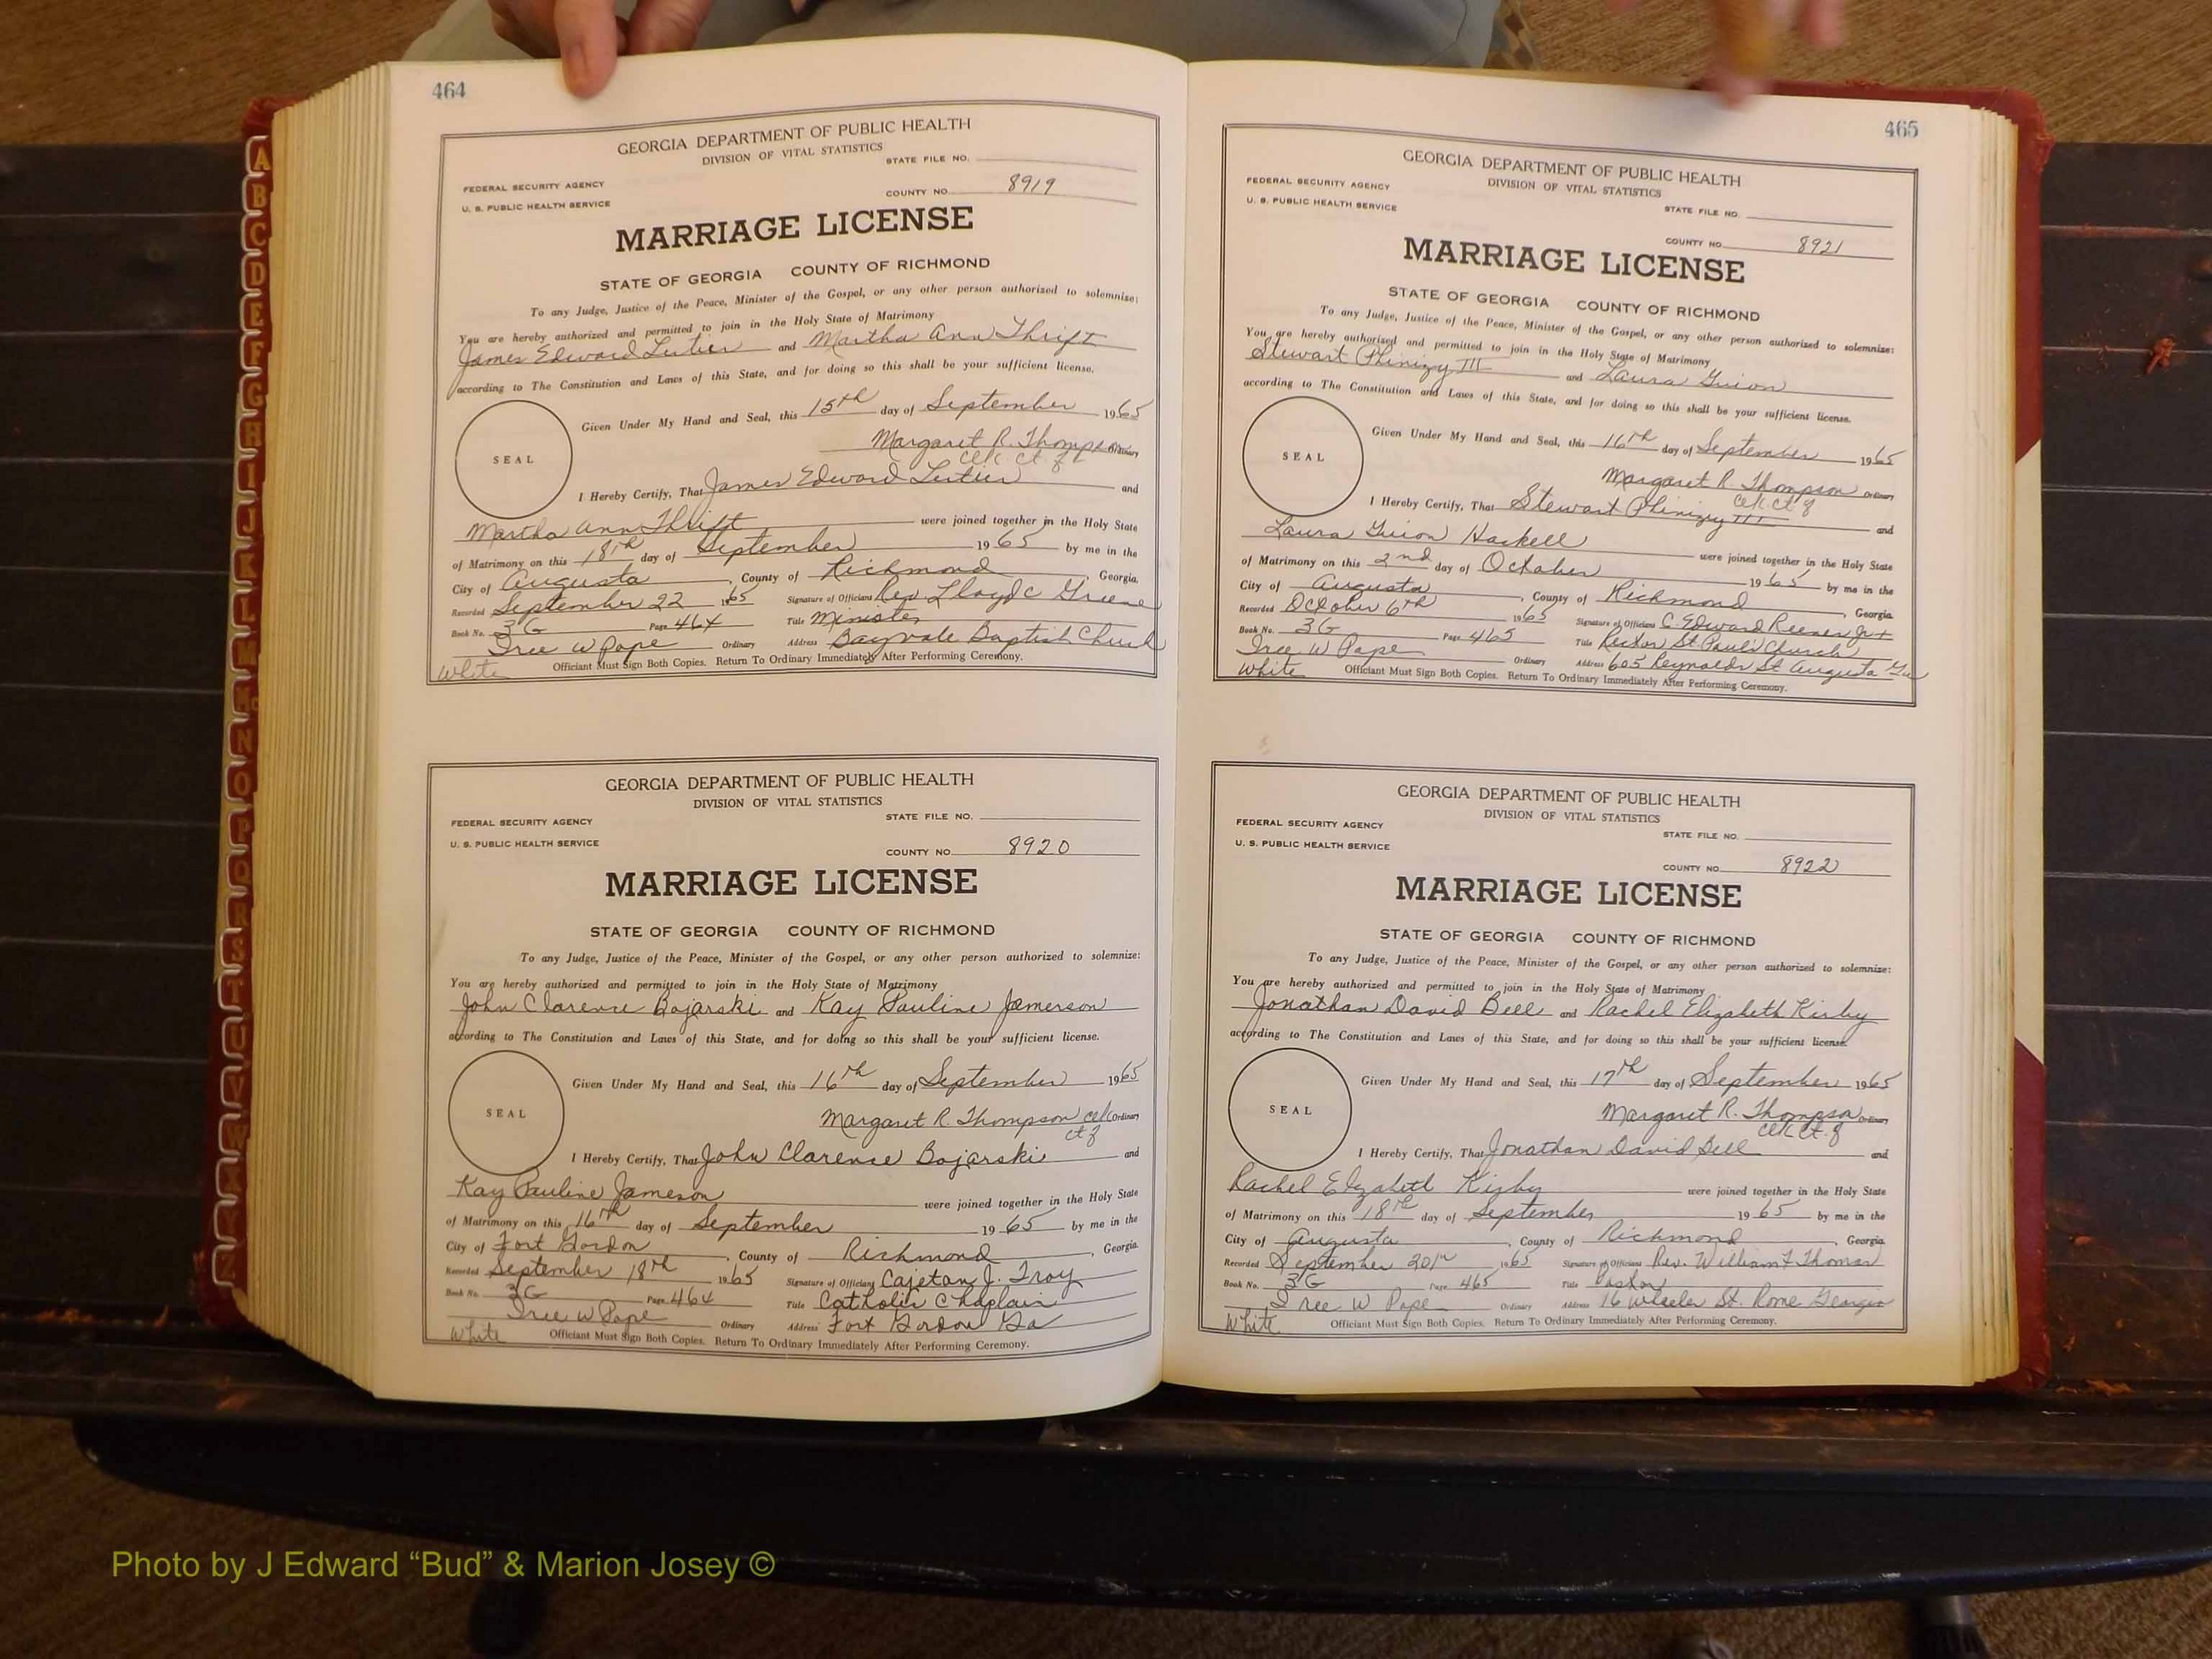 464
GEORGIA DEPARTMENT OF PUBLIC HEALTH
DIVISION OF VITAL STATISTICS
STATE FILE NO.
FEDERAL SECURITY AGENCY
U. S. PUBLIC HEALTH SERVICE
COUNTY NO. 8919
MARRIAGE LICENSE
STATE OF GEORGIA COUNTY OF RICHMOND
To any Judge, Justice of the Peace, Minister of the Gospel, or any other person authorized to solemnize:
You are hereby authorized and permitted to join in the Holy State of Matrimony
James Edward and Martha Ann Thrift
according to The Constitution and Laws of this State, and for doing so this shall be your sufficient license.
Given Under My Hand and Seal, this 15th day of September 1965
SEAL
Margaret R. Thompson Ordinary
Clk Ct of
I Hereby Certify, That James Edward and
Martha Ann Thrift were joined together in the Holy State
of Matrimony on this 18th day of September 1965 by me in the
City of Augusta, County of Richmond, Georgia.
Recorded September 22 1965 Signature of Officiant Rev. Lloyd C Greene
Book No. 3G Page 464 Title Minister
W Pope Ordinary Address Bayvale Baptist Church
White Officiant Must Sign Both Copies. Return To Ordinary Immediately After Performing Ceremony.
GEORGIA DEPARTMENT OF PUBLIC HEALTH
DIVISION OF VITAL STATISTICS
STATE FILE NO.
FEDERAL SECURITY AGENCY
U. S. PUBLIC HEALTH SERVICE
COUNTY NO. 8920
MARRIAGE LICENSE
STATE OF GEORGIA COUNTY OF RICHMOND
To any Judge, Justice of the Peace, Minister of the Gospel, or any other person authorized to solemnize:
You are hereby authorized and permitted to join in the Holy State of Matrimony
John Clarence Bojarski and Kay Pauline Jamerson
according to The Constitution and Laws of this State, and for doing so this shall be your sufficient license.
Given Under My Hand and Seal, this 16th day of September 1965
SEAL
Margaret R. Thompson Clk Ordinary
Ct of
I Hereby Certify, That John Clarence Bojarski and
Kay Pauline Jameson were joined together in the Holy State
of Matrimony on this 16th day of September 1965 by me in the
City of Fort Gordon, County of Richmond, Georgia.
Recorded September 18th 1965 Signature of Officiant Cajetan J. Troy
Book No. 3G Page 464 Title Catholic Chaplain
W Pope Ordinary Address Fort Gordon Ga
White Officiant Must Sign Both Copies. Return To Ordinary Immediately After Performing Ceremony.
465
GEORGIA DEPARTMENT OF PUBLIC HEALTH
DIVISION OF VITAL STATISTICS
STATE FILE NO.
FEDERAL SECURITY AGENCY
U. S. PUBLIC HEALTH SERVICE
COUNTY NO. 8921
MARRIAGE LICENSE
STATE OF GEORGIA COUNTY OF RICHMOND
To any Judge, Justice of the Peace, Minister of the Gospel, or any other person authorized to solemnize:
You are hereby authorized and permitted to join in the Holy State of Matrimony
Stewart Phinizy III and Laura Guion
according to The Constitution and Laws of this State, and for doing so this shall be your sufficient license.
Given Under My Hand and Seal, this 16th day of September 1965
SEAL
Margaret R. Thompson Ordinary
Clk Ct of
I Hereby Certify, That Stewart Phinizy III and
Laura Guion Haskell were joined together in the Holy State
of Matrimony on this 2nd day of October 1965 by me in the
City of Augusta, County of Richmond, Georgia.
Recorded October 6th 1965 Signature of Officiant C. Edward Jr
Book No. 3G Page 465 Title Rector St. Paul's Church
W Pope Ordinary Address 605 Reynolds St Augusta Ga
White Officiant Must Sign Both Copies. Return To Ordinary Immediately After Performing Ceremony.
GEORGIA DEPARTMENT OF PUBLIC HEALTH
DIVISION OF VITAL STATISTICS
STATE FILE NO.
FEDERAL SECURITY AGENCY
U. S. PUBLIC HEALTH SERVICE
COUNTY NO. 8922
MARRIAGE LICENSE
STATE OF GEORGIA COUNTY OF RICHMOND
To any Judge, Justice of the Peace, Minister of the Gospel, or any other person authorized to solemnize:
You are hereby authorized and permitted to join in the Holy State of Matrimony
Jonathan David Bell and Rachel Elizabeth Kirby
according to The Constitution and Laws of this State, and for doing so this shall be your sufficient license.
Given Under My Hand and Seal, this 17th day of September 1965
SEAL
Margaret R. Thompson Ordinary
Clk Ct. of
I Hereby Certify, That Jonathan David Bell and
Rachel Elizabeth Kirby were joined together in the Holy State
of Matrimony on this 18th day of September 1965 by me in the
City of Augusta, County of Richmond, Georgia.
Recorded September 20th 1965 Signature of Officiant Rev. William F Thomas
Book No. 3G Page 465 Title Pastor
W Pope Ordinary Address 16 Wheeler St. Rome Georgia
White Officiant Must Sign Both Copies. Return To Ordinary Immediately After Performing Ceremony.
A
B
C
D
E
F
G
H
I
J
K
L
M
Mc
N
O
P
Q
R
S
T
U
V
W
X
Y
Z
Photo by J Edward “Bud” & Marion Josey ©